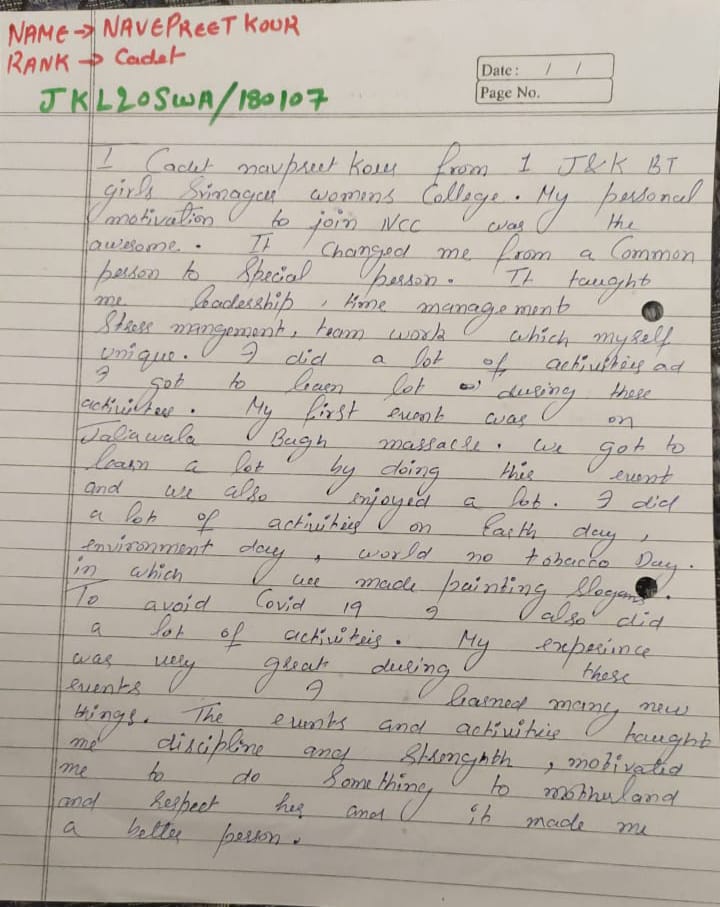 NAME → NAVEPREET KOUR
RANK → Cadet
JKL20SWA/180107
Date : / /
Page No.
I Cadet navpreet Kour from 1 J&K BT
girls Srinagar womens College. My personal
motivation to join NCC was the
awesome. It changed me from a Common
person to Special person. It taught
me leadership, time management
Stress mangement, team work which myself
unique. I did a lot of activities ad
I got to learn lot during these
activities. My first event was on
Jaliawala Bagh massacre. we got to
learn a lot by doing this event
and we also enjoyed a lot. I did
a lot of activities on Earth day,
environment day, world no tobacco Day.
in which we made painting slogans.
To avoid Covid 19 I also did
a lot of activiteis. My experince
was very great during these
events I learned many new
things. The events and activities taught
me discipline and Strenghth, motivated
me to do Something to motherland
and respect her and it made me
a better person.